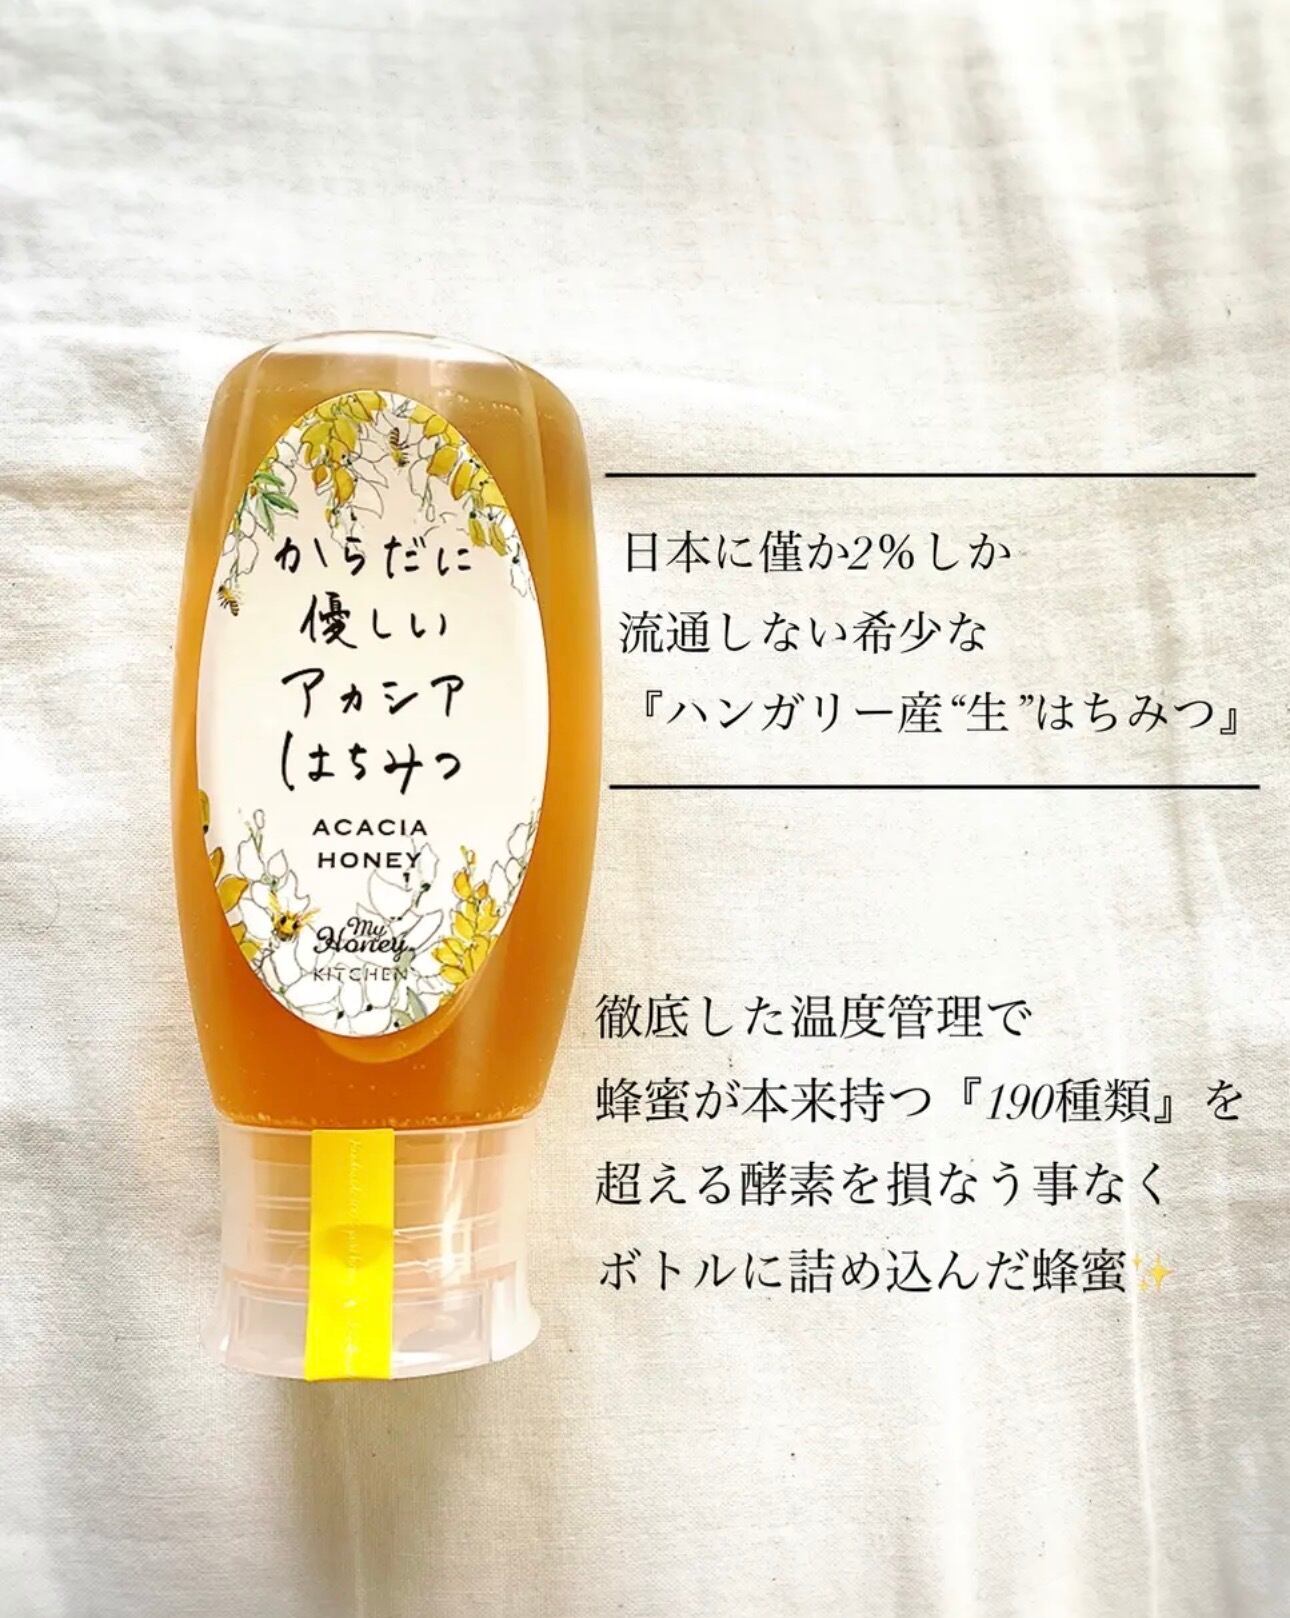 からだに
優しい
アカシア
はちみつ
ACACIA
HONEY
My
Honey
KITCHEN
日本に僅か2%しか
流通しない希少な
『ハンガリー産“生”はちみつ』
徹底した温度管理で
蜂蜜が本来持つ『190種類』を
超える酵素を損なう事なく
ボトルに詰め込んだ蜂蜜✨